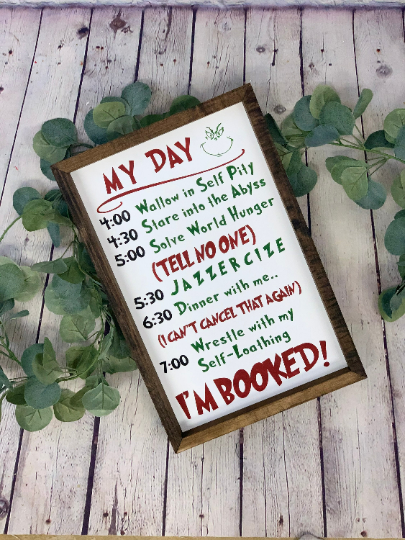 MY DAY
4:00 Wallow in Self Pity
4:30 Stare into the Abyss
5:00 Solve World Hunger
(TELL NO ONE)
5:30 JAZZERCIZE
6:30 Dinner with me..
(I CAN'T CANCEL THAT AGAIN)
7:00 Wrestle with my
Self-Loathing
I'M BOOKED!